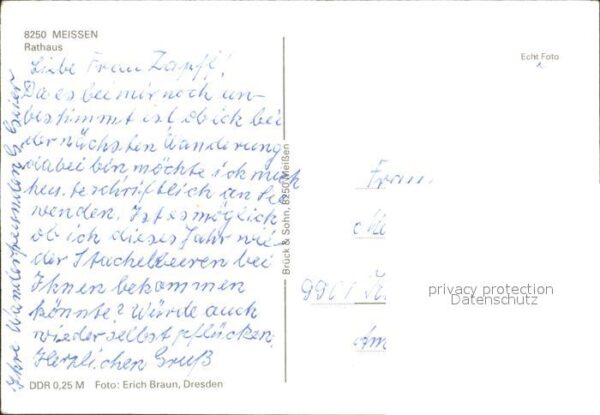 8250 MEISSEN
Rathaus
Liebe Frau Zapfe!
Da es bei mir noch un-
bestimmt ist ob ick bei
der nächsten Wanderung
dabei bin möchte ick mich
heute schriftlich an Sie
wenden. Ist es möglich
ob ich dieses Jahr wie-
der Stachelbeeren bei
Ihnen bekommen
könnte? Würde auch
wieder selbst pflücken.
Herzlichen Gruß
Ihre Wanderfreundin G.
DDR 0,25 M Foto: Erich Braun, Dresden
Brück & Sohn, 8250 Meißen
Echt Foto
Frau
privacy protection
Datenschutz
Am